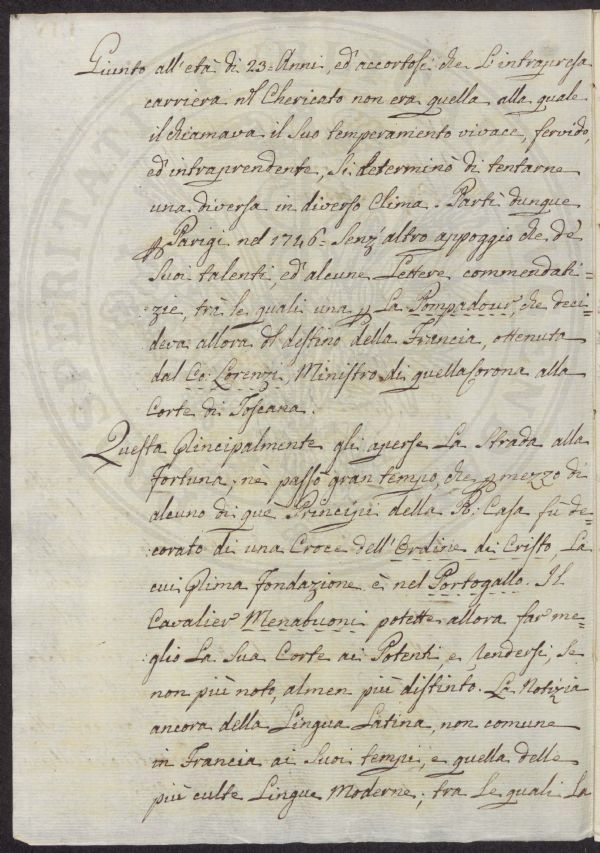 Giunto all'età di 23=Anni, ed' accortosi che L'intrapresa
carriera nel Chericato non era quella alla quale
il chiamava il suo temperamento vivace, fervido,
ed' intraprendente, si determinò di tentarne
una diversa in diverso Clima. Partì dunque
p Parigi nel 1746. senz'altro appoggio che de'
suoi talenti, ed' alcune Lettere commendati=
:zie, trà le quali una p La Pompadour, che deci=
deva allora del destino della Francia, ottenuta
dal Co: Lorenzi, Ministro di quella Corona alla
Corte di Toscana.
Questa principalmente gli aperse La strada alla
fortuna; nè passò gran tempo, che p mezzo di
alcuno di que' Principi della R: Casa fù de=
:corato di una Croce dell'Ordine di Cristo, La
cui prima fondazione è nel Portogallo. Il
Cavalier Menabuoni potette allora far me=
glio La sua Corte ai Potenti, e rendersi, se
non più noto, almen più distinto. La Notizia
ancora della Lingua Latina, non comune
in Francia ai suoi tempi, e quella delle
più culte Lingue Moderne; tra Le quali La